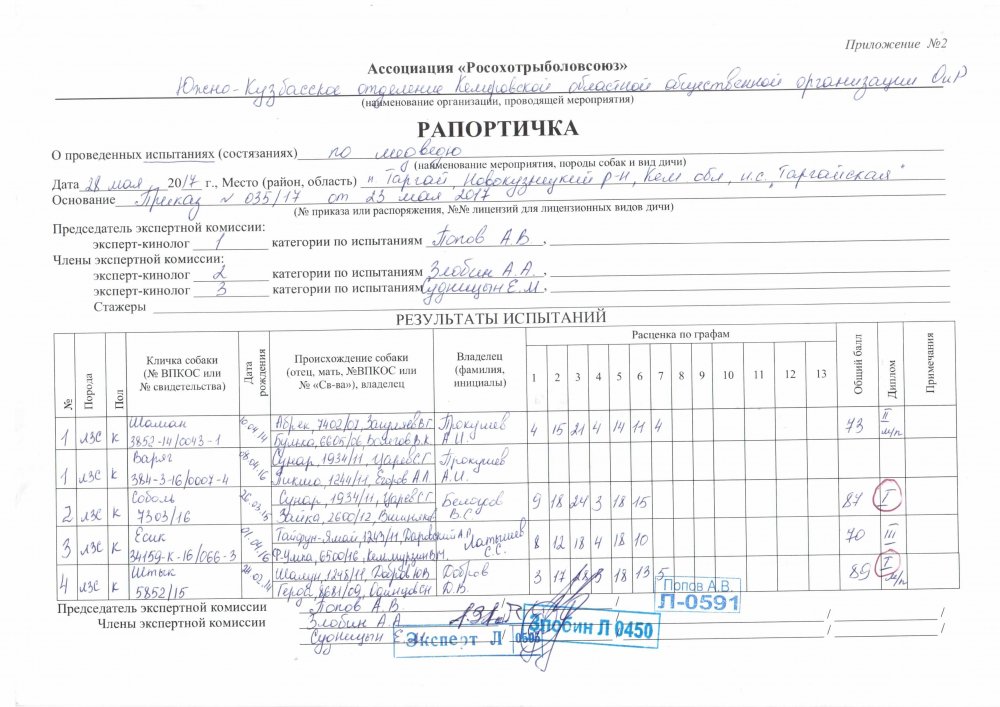 Приложение №2
Ассоциация «Росохотрыболовсоюз»
Южно-Кузбасское отделение Кемеровской областной общественной организации ОиР
(наименование организации, проводящей мероприятия)
РАПОРТИЧКА
О проведенных испытаниях (состязаниях) по медведю
(наименование мероприятия, породы собак и вид дичи)
Дата 28 мая 2017 г., Место (район, область) п Таргай, Новокузнецкий р-н, Кем обл, и.с. "Таргайская"
Основание Приказ № 035/17 от 23 мая 2017
(№ приказа или распоряжения, №№ лицензий для лицензионных видов дичи)
Председатель экспертной комиссии:
эксперт-кинолог 1 категории по испытаниям Попов А.В.
Члены экспертной комиссии:
эксперт-кинолог 2 категории по испытаниям Злобин А.А.
эксперт-кинолог 3 категории по испытаниям Судницын Е.М.
Стажеры
РЕЗУЛЬТАТЫ ИСПЫТАНИЙ
№ Порода Пол Кличка собаки (№ ВПКОС или № свидетельства) Дата рождения Происхождение собаки (отец, мать, №ВПКОС или № «Св-ва»), владелец Владелец (фамилия, инициалы) Расценка по графам Общий балл Диплом Примечания
1 2 3 4 5 6 7 8 9 10 11 12 13
1 лзс к Шаман 3852-14/0043-1 10.04.14 Абрек, 7402/07, Булька, 6605/06 Прокушев А.И. 4 15 21 4 14 11 4 73 II м/п
1 лзс к Варяг 384-3-16/0007-4 08.04.16 Сунар, 1934/11, Царев С.Г. Пикша, 1244/11, Егоров А.Л. Прокушев А.И.
2 лзс к Соболь 7303/16 26.03.15 Сунар, 1934/11, Царев С.Г. Зайка, 2600/12, Вишняков Белоусов В.С. 9 18 24 3 18 15 87 I
3 лзс к Есик 34159-К-16/066-3 01.04.16 Тайфун-Ямай, 1243/11, 6500/16 Латышев С.С. 8 12 18 4 18 10 70 III
4 лзс к Штык 5852/15 Шамун, 1248/11, Добров Ю.В. 8681/09, Одинцов Добров Д.В. 3 17 28 3 18 13 5 89 I м/п
Председатель экспертной комиссии Попов А.В.
Члены экспертной комиссии Злобин А.А.
Судницын Е.М.
Попов А.В.
Л-0591
Злобин Л 0450
Эксперт Л